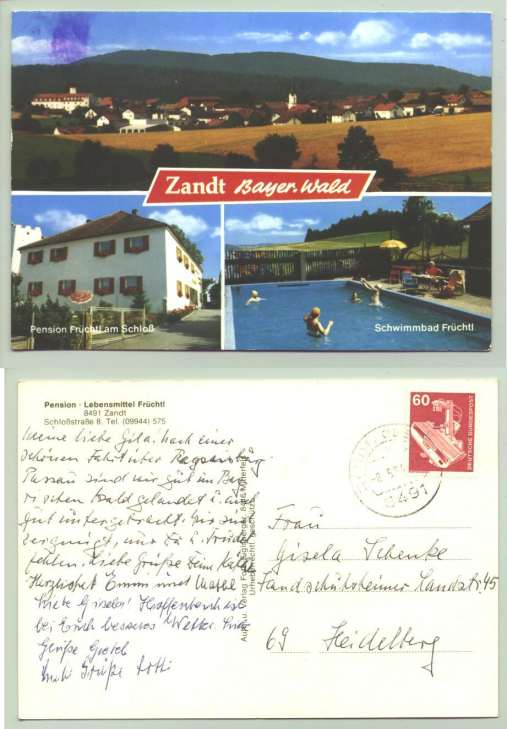 Zandt Bayer. Wald
Pension Früchtl am Schloß
Schwimmbad Früchtl
Pension · Lebensmittel Früchtl
8491 Zandt
Schloßstraße 8. Tel. (09944) 575
60
DEUTSCHE BUNDESPOST
8491
Meine liebe Gisa! Nach einer
schönen Fahrt über Regensburg
Passau sind wir gut im Baye
rischen Wald gelandet u. auch
gut untergebracht. Wir sind
vergnügt, nur Du u. Trudel
fehlen. Liebe Grüße Deine Käthe
Herzlichst Emmi und
Liebe Gisela! Hoffentlich ist
bei Euch besseres Wetter.
Grüße Gretel
Grüße Lotti
Frau
Gisela Schenke
Landschutsheimer Landstr. 45
69 Heidelberg